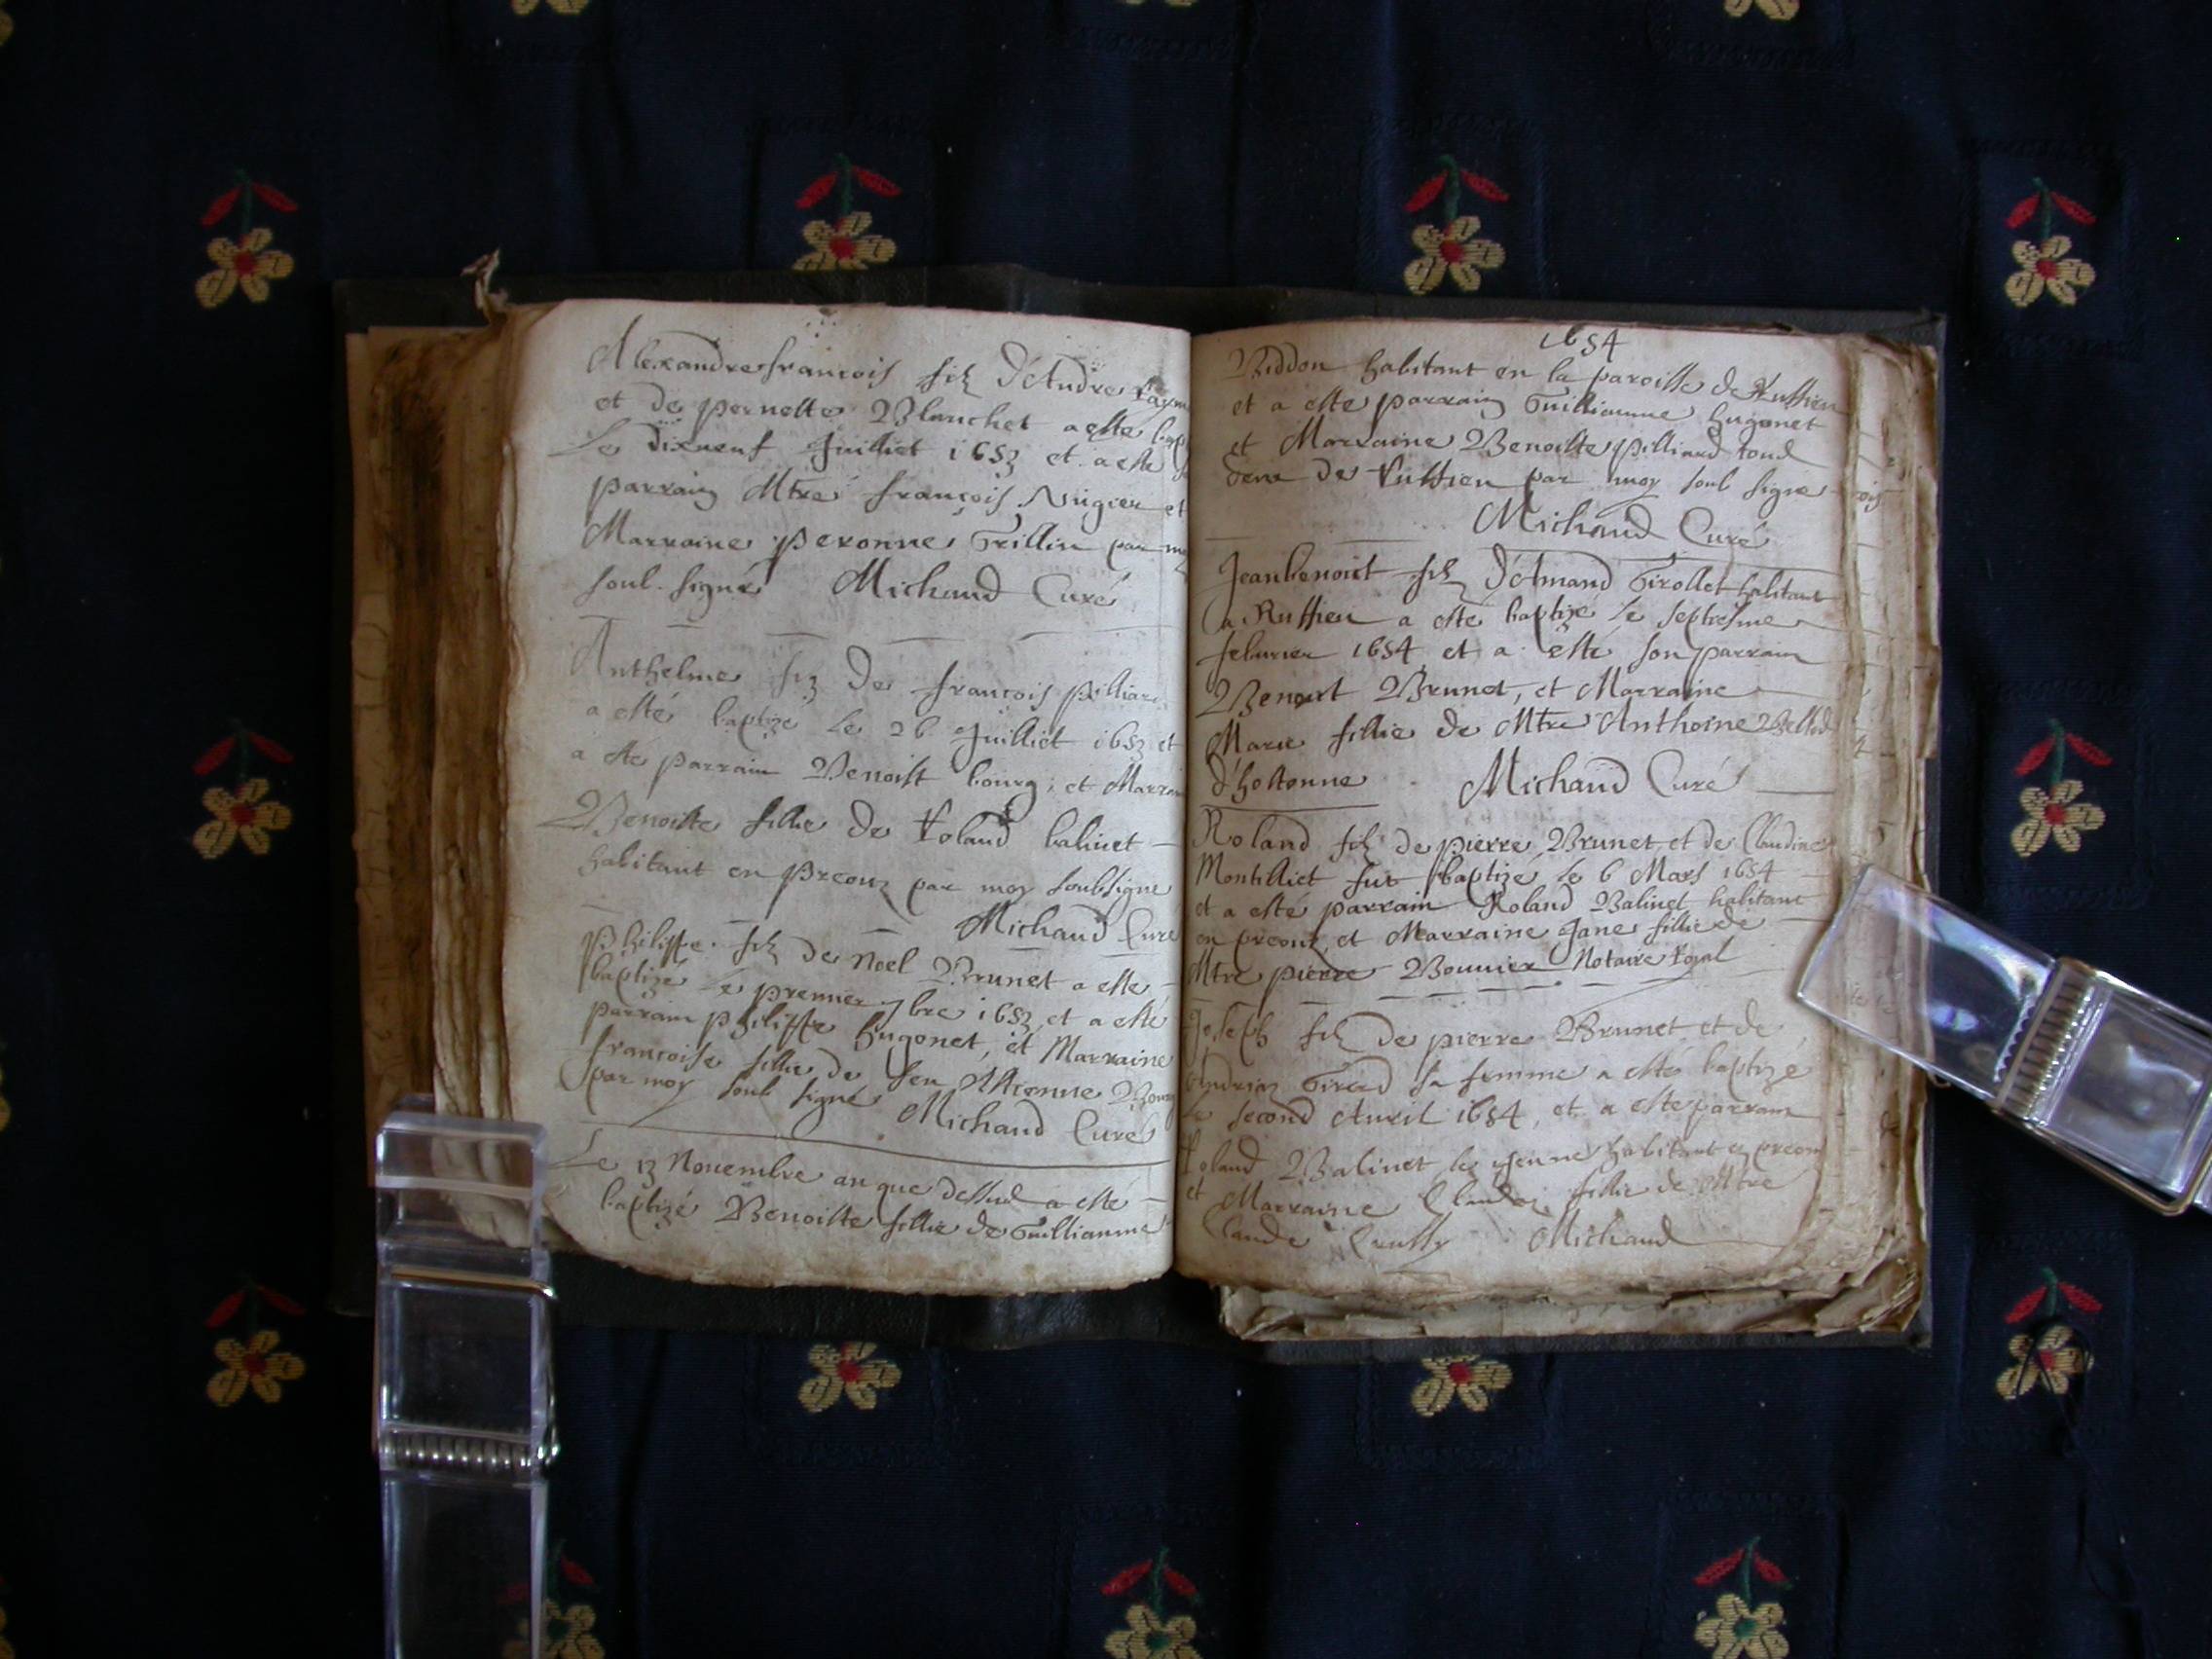 Alexandre françois filz d'Andre Raym
et de pernette Blanchet a esté bap
Le dixneuf Juilliet 1653 et a esté
parrain Mtre françois Nugier et
Marraine peronne Grillin par moy
soub signé Michaud Curé
Anthelme filz de françois pilliard
a esté baptize le 26 Juilliet 1653 et
a esté parrain Benoist bourg, et Marrai
Benoiste fillie de Roland balinet
habitant en preouz par moy soubsigne
Michaud Curé
Philippe filz de Noel Brunet a esté
baptizé le premier 7bre 1653 et a esté
parrain philippe hugonet, et Marraine
francoise fillie de feu Estienne Bourg
par moy soub signé Michaud Curé
Le 13 Novembre an que dessus a esté
baptizé Benoiste fillie de Guillianme
1654
Biddon habitant en la paroisse de Ruffieu
et a esté parrain Guillianme hugonet
et Marraine Benoiste pilliard tous
deux de Ruffieu par moy soub signe
Michaud Curé
Jeanbenoist filz d'Amand Girollet habitant
a Ruffieu a esté baptize le septiesme
feburier 1654 et a esté son parrain
Benoist Brunet, et Marraine
Marie fillie de Mtre Anthoine Bellod
d'hostonne Michaud Curé
Roland filz de pierre Brunet et de Claudine
Montilliet fut baptizé le 6 Mars 1654
et a esté parrain Roland Balinet habitant
en preouz et Marraine Jane fillie de
Mtre pierre Bonnier Notaire Royal
Joseph filz de pierre Brunet et de
Andrian Girod sa femme a esté baptizé
le second Avril 1654, et a esté parrain
Roland Balinet le jeune habitant en preouz
et Marraine Clauda fillie de Mtre
Claude Michaud